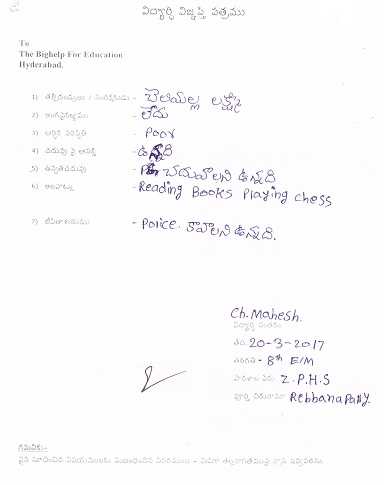 విద్యార్థి విజ్ఞప్తి పత్రము
To
The Bighelp For Education
Hyderabad.
1) తల్లిదండ్రులు / సంరక్షకుడు - చెలిమల్ల లక్ష్మి
2) అంగవైకల్యము - లేదు
3) ఆర్థిక పరిస్థితి - Poor
4) చదువు పై ఆసక్తి - ఉన్నది
5) ఉన్నతచదువు - చదువాలని ఉన్నది
6) అలవాట్లు - Reading Books Playing chess
7) జీవితాశయము - Police. కావాలని ఉన్నది.
Ch. Mahesh.
విద్యార్థి సంతకం
తేది 20-3-2017
తరగతి - 8th E/M
పాఠశాల పేరు Z.P.H.S
పూర్తి చిరునామా Rebbanapally.
గమనిక:-
పైన సూచించిన విషయములకు సంబంధించిన వివరములు - విడిగా తెల్లకాగితముపై వ్రాసి ఇవ్వవలెను.